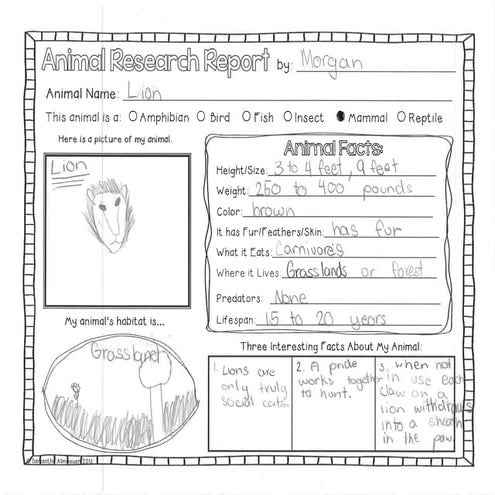 Animal Research Report by: Morgan
Animal Name: Lion
This animal is a: Amphibian Bird Fish Insect Mammal Reptile
Here is a picture of my animal.
Lion
Animal Facts:
Height/Size: 3 to 4 feet, 9 feet
Weight: 250 to 400 pounds
Color: brown
It has Fur/Feathers/Skin: has fur
What it Eats: Carnivore's
Where it Lives: Grasslands or forest
Predators: None
Lifespan: 15 to 20 years
My animal's habitat is...
Grassland
Three Interesting Facts About My Animal:
1. Lions are
only truly
social cats.
2. A pride
works together
to hunt.
3. when not
in use each
claw on a
lion withdraws
into a sheath
in the paw.
© Samantha 2013